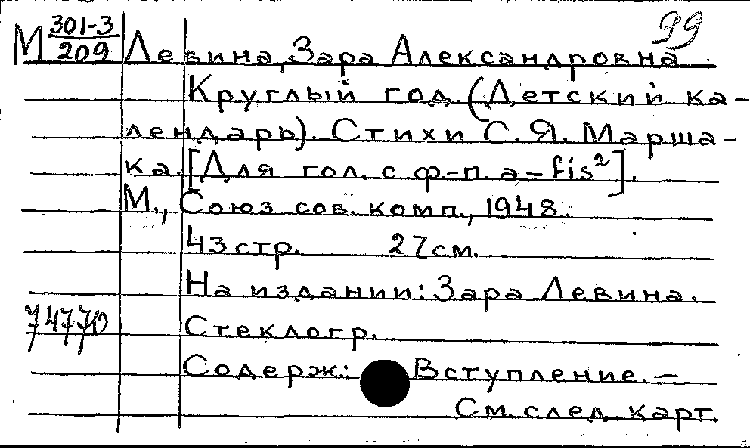 99
М 301-3/209 Левина, Зара Александровна
Круглый год (Детский ка-
лендарь). Стихи С. Я. Марша-
ка. [Для гол. с ф-п. a – fis²].
М., Союз сов. комп., 1948.
43 стр. 27 см.
На издании: Зара Левина.
74770 Стеклогр.
Содерж.: Вступление. –
См. след. карт.